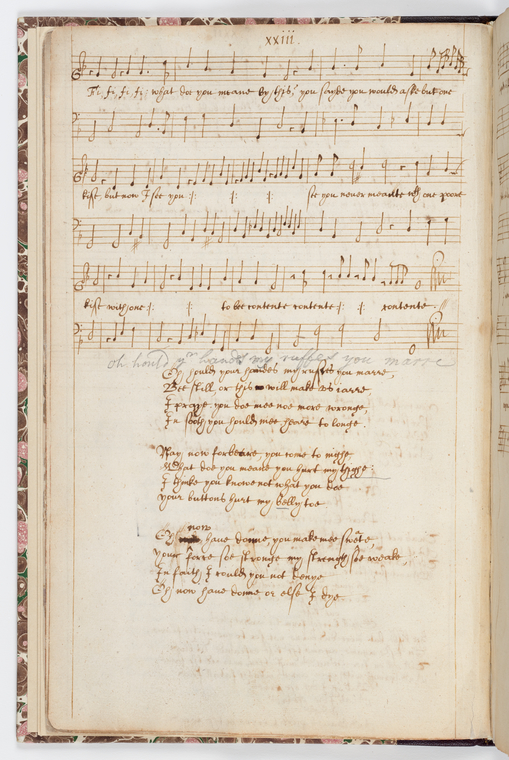 xxiii.
Fi, fi, fi, fi, what doe you meane by this? you sayde you would aske but one
kisse but now I see you :|: :|: :|: see you never meante wth one poore
kisse with one :|: :|: to be contente contente :|: :|: contente
oh hould yor hands my ruffes you marre
Oh hould your handes my ruffes you marre,
Bee still, or this will make us jarre
I you doe mee noe more wronge,
In sooth you hould mee heare to longe.
Nay now forbeare, you come to nighe
What doe you meane you hurt my thighe:
I thinke you knowe not what you doe
your buttons hurt my belly toe
now
Oh have donne, you make mee sweate,
your soe stronge my strength soe weake
In faith I could you not denye
Oh now have donne or else I dye